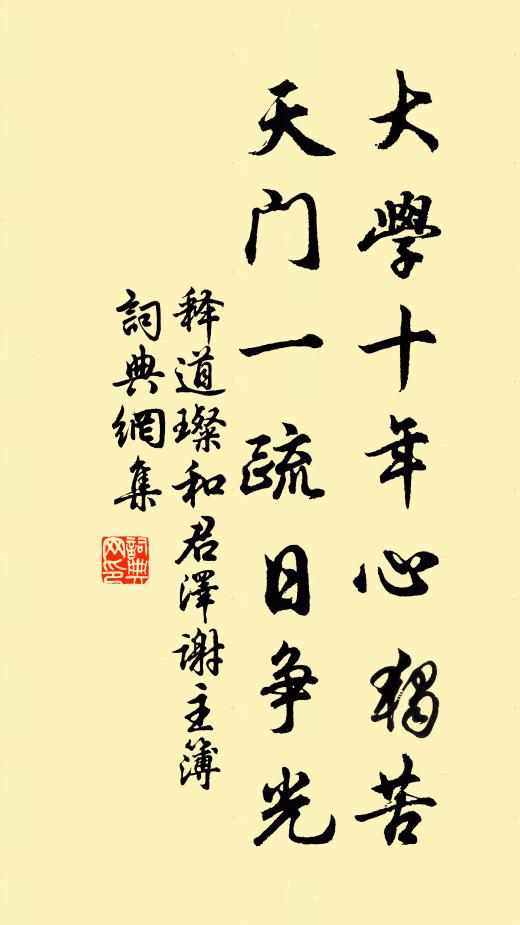 大學十年心獨苦
天門一疏日争光
释道璨和君澤謝主簿
詞典網集
詞典网印